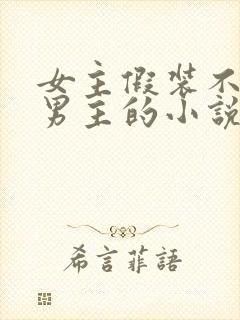 女主假裝不
男主的小說
希言菲語